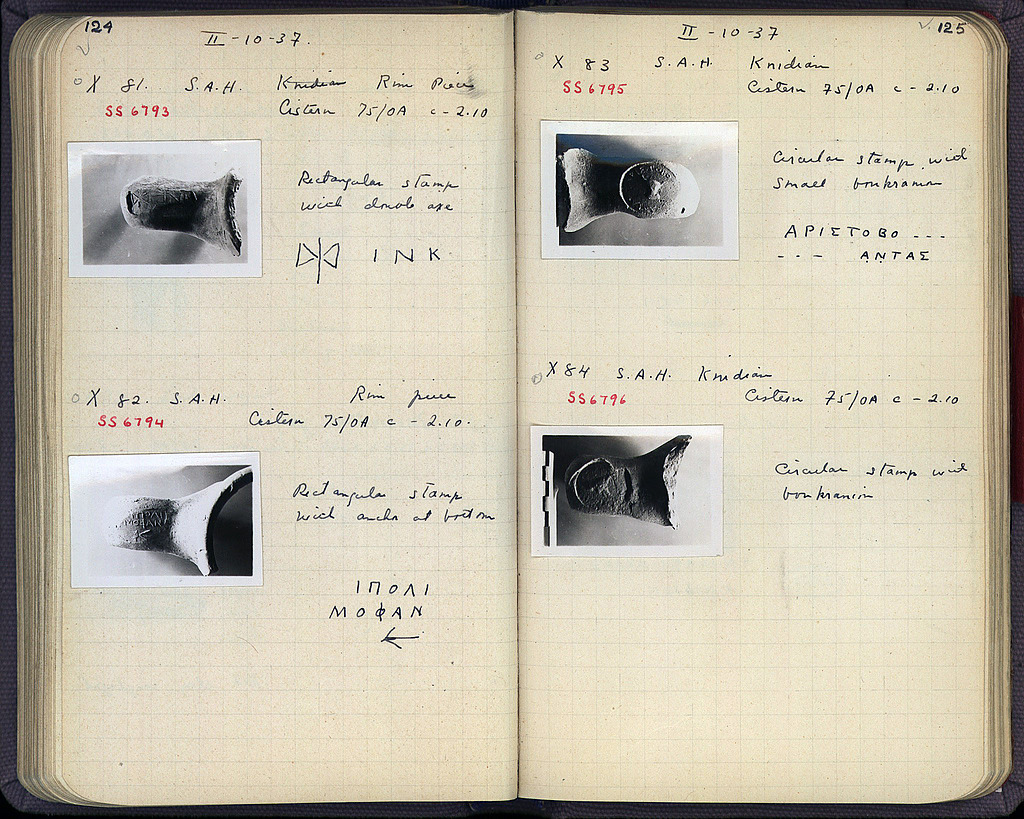 124
II - 10 - 37.
X 81. S.A.H. Knidian Rim Piece
SS 6793 Cistern 75/OA c - 2.10
Rectangular stamp
with double axe
I N K
X 82. S.A.H. Rim piece
SS 6794 Cistern 75/OA c - 2.10.
Rectangular stamp
with anchor at bottom
ΙΠΟΛΙ
ΜΟΦΑΝ
125
II - 10 - 37
X 83 S.A.H. Knidian
SS 6795 Cistern 75/OA c - 2.10
Circular stamp with
small boukranion
ΑΡΙΣΤΟΒΟ ---
--- ΑΝΤΑΣ
X 84 S.A.H. Knidian
SS 6796 Cistern 75/OA c - 2.10
Circular stamp with
boukranion